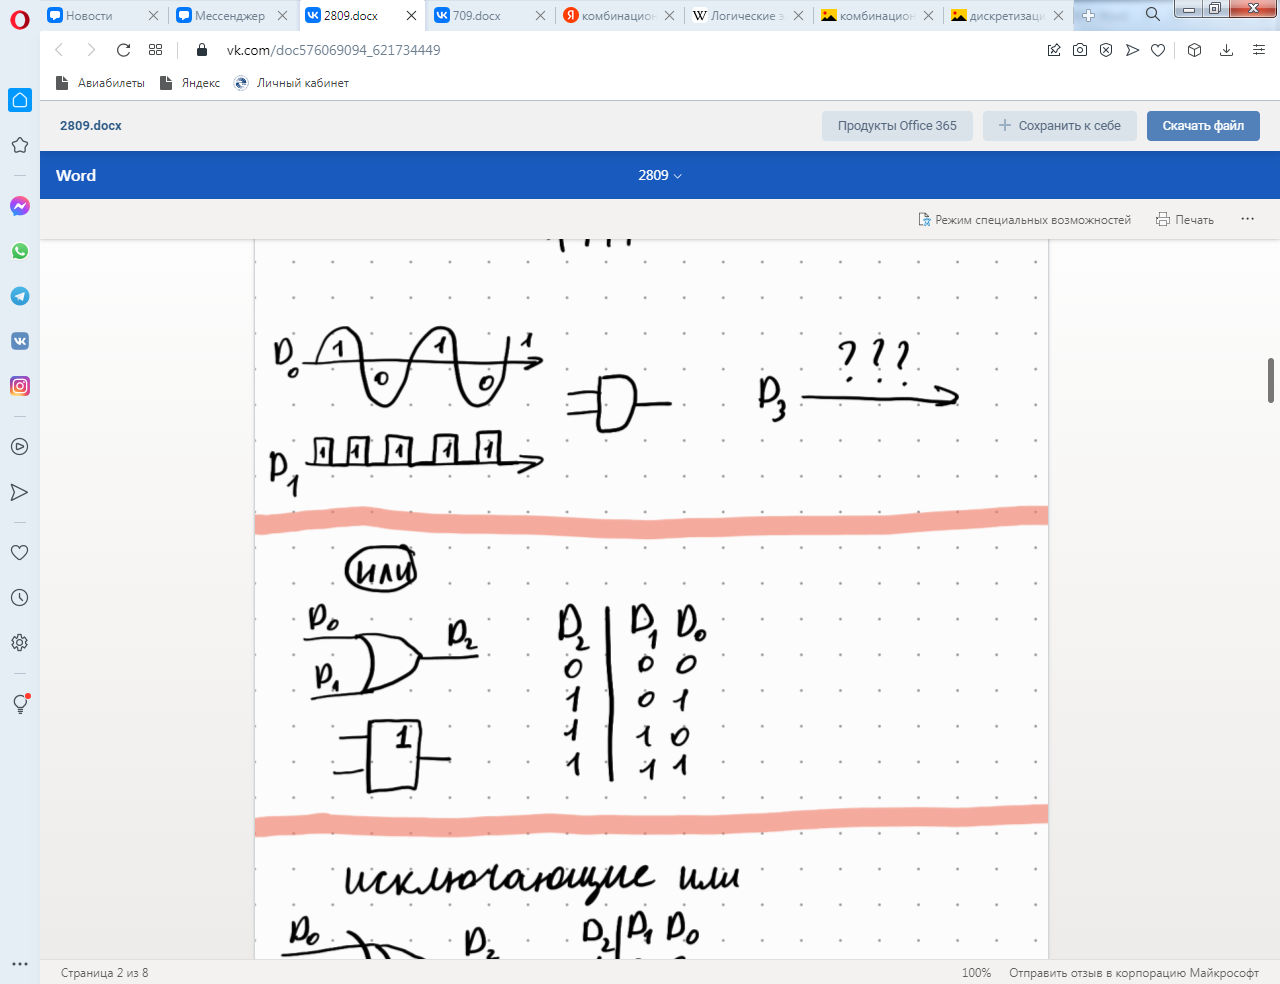 Новости
Мессенджер
2809.docx
709.docx
комбинацион
Логические э
комбинацион
дискретизаци
vk.com/doc576069094_621734449
Авиабилеты
Яндекс
Личный кабинет
2809.docx
Продукты Office 365
Сохранить к себе
Скачать файл
Word
2809
Режим специальных возможностей
Печать
D0 1 0 1 0 1
D1 1 1 1 1 1
D3 ???
или
D0
D1
D2
1
D2 | D1 D0
0 | 0 0
1 | 0 1
1 | 1 0
1 | 1 1
исключающие или
D0
D2
D2 | D1 D0
Страница 2 из 8
100%
Отправить отзыв в корпорацию Майкрософт